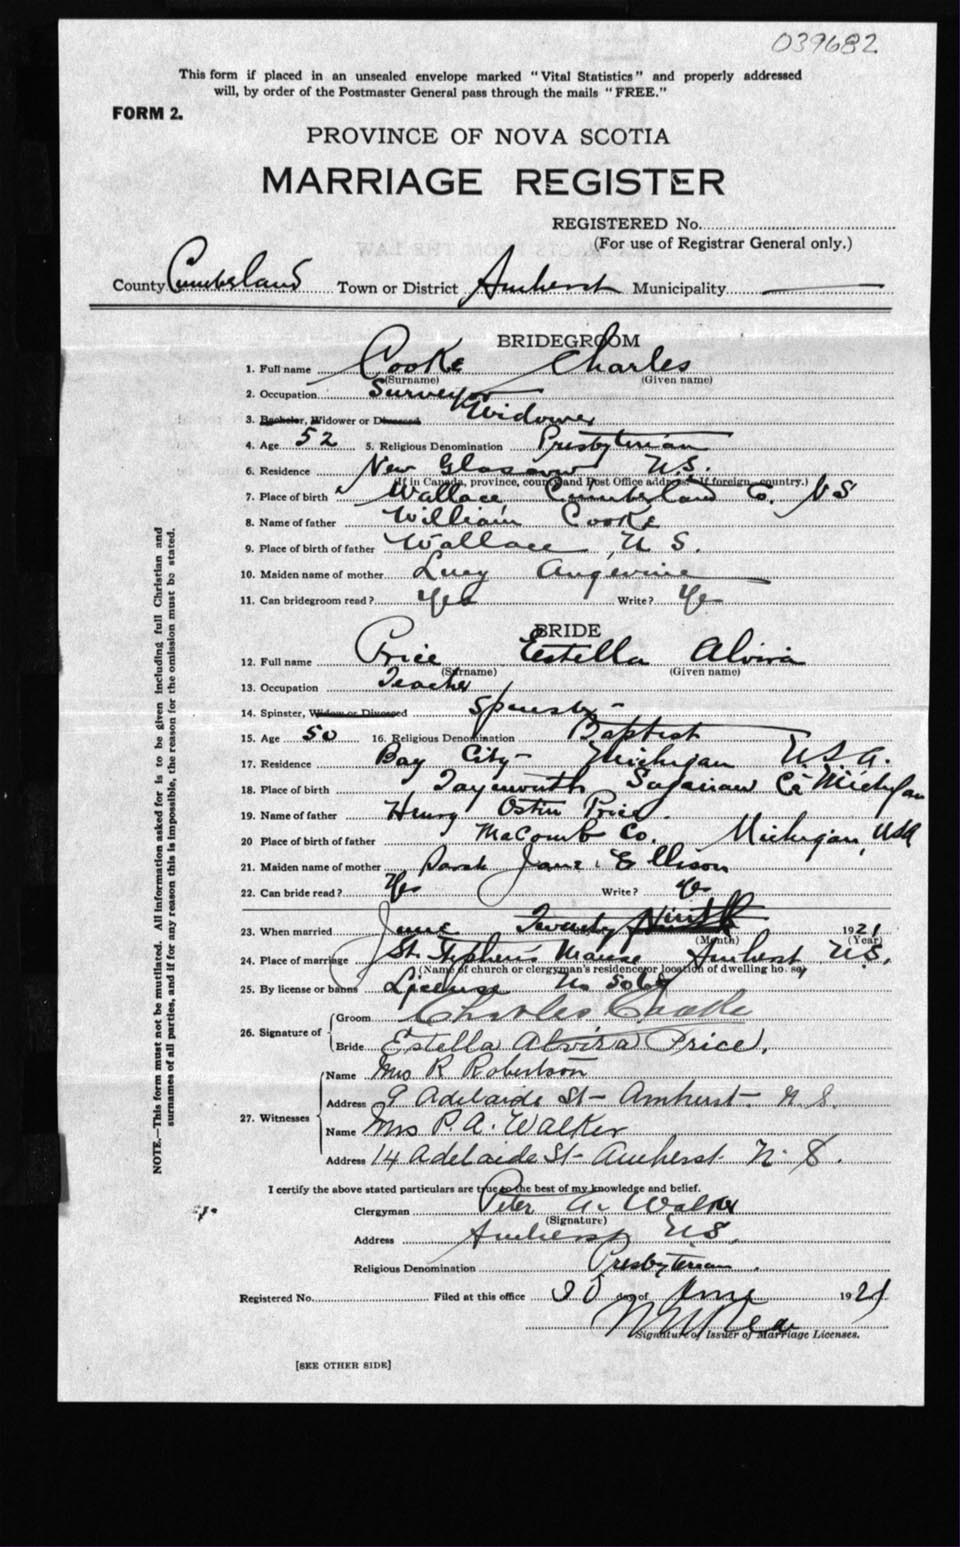 039682
This form if placed in an unsealed envelope marked "Vital Statistics" and properly addressed
will, by order of the Postmaster General pass through the mails "FREE."
FORM 2.
PROVINCE OF NOVA SCOTIA
MARRIAGE REGISTER
REGISTERED No.
(For use of Registrar General only.)
County Cumberland Town or District Amherst Municipality
BRIDEGROOM
1. Full name Cooke Charles
(Surname) (Given name)
2. Occupation Surveyor
3. Bachelor, Widower or Divorced Widower
4. Age 52 5. Religious Denomination Presbyterian
6. Residence New Glasgow N.S.
(If in Canada, province, county and Post Office address. If foreign, country.)
7. Place of birth Wallace Cumberland Co. NS
8. Name of father William Cooke
9. Place of birth of father Wallace, N S.
10. Maiden name of mother Lucy Angevine
11. Can bridegroom read? Yes Write? Ye
BRIDE
12. Full name Price Estella Alvira
(Surname) (Given name)
13. Occupation Teacher
14. Spinster, Widow or Divorced Spinster
15. Age 50 16. Religious Denomination Baptist
17. Residence Bay City Michigan U.S.A.
18. Place of birth Taymouth Saginaw Co Michigan
19. Name of father Henry Ostin Price
20 Place of birth of father MaComb Co. Michigan, USA
21. Maiden name of mother Sarah Jane Ellison
22. Can bride read? Yes Write? Yes
23. When married June Twenty 1921
(Month) (Year)
24. Place of marriage St. Stephen's Manse Amherst N.S.
(Name of church or clergyman's residence or location of dwelling ho. se)
25. By license or banns License No
26. Signature of Groom Charles Cooke
Bride Estella Alvira Price,
27. Witnesses Name Mrs R Robertson
Address 9 Adelaide St- Amherst- N.S.
Name Mrs P. A. Walker
Address 14 Adelaide St- Amherst N. S.
I certify the above stated particulars are true to the best of my knowledge and belief.
Clergyman Peter A. Walker
(Signature)
Address Amherst NS.
Religious Denomination Presbyterian.
Registered No. Filed at this office 30 day of June 1921
Signature of Issuer of Marriage Licenses.
[SEE OTHER SIDE]
NOTE.—This form must not be mutilated. All information asked for is to be given including full Christian and
surnames of all parties, and if for any reason this is impossible, the reason for the omission must be stated.